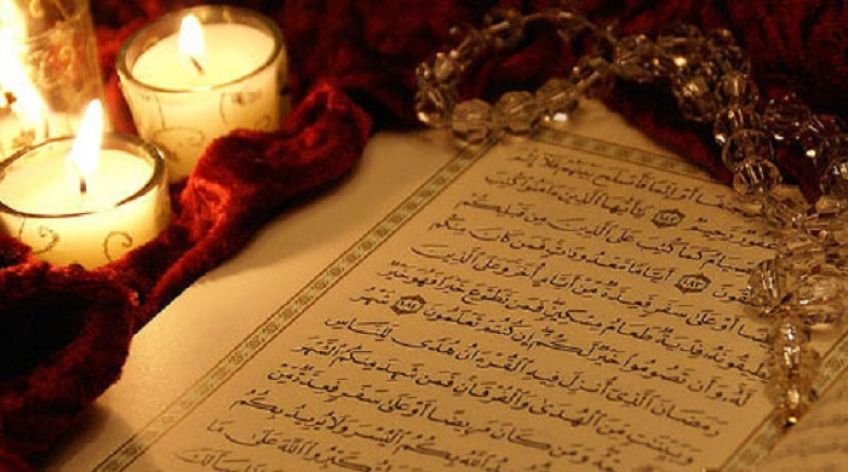 أَوْ إِثْمًا فَأَصْلَحَ بَيْنَهُمْ فَلَآ إِثْمَ
غَفُورٌ رَّحِيمٌ ١٨٢ يَٰٓأَيُّهَا ٱلَّذِينَ ءَامَنُوا۟ كُتِبَ
ٱلصِّيَامُ كَمَا كُتِبَ عَلَى ٱلَّذِينَ مِن قَبْلِكُمْ
١٨٣ أَيَّامًا مَّعْدُودَٰتٍ فَمَن كَانَ مِنكُم
أَوْ عَلَىٰ سَفَرٍ فَعِدَّةٌ مِّنْ أَيَّامٍ أُخَرَ وَعَلَى ٱلَّذِينَ
يُطِيقُونَهُۥ فِدْيَةٌ طَعَامُ مِسْكِينٍ فَمَن تَطَوَّعَ خَيْرًا فَهُوَ خَيْرٌ
لَّهُۥ وَأَن تَصُومُوا۟ خَيْرٌ لَّكُمْ إِن كُنتُمْ تَعْلَمُونَ ١٨٤ شَهْرُ
رَمَضَانَ ٱلَّذِىٓ أُنزِلَ فِيهِ ٱلْقُرْءَانُ هُدًى لِّلنَّاسِ
وَبَيِّنَٰتٍ مِّنَ ٱلْهُدَىٰ وَٱلْفُرْقَانِ فَمَن شَهِدَ مِنكُمُ ٱلشَّهْرَ
وَمَن كَانَ مَرِيضًا أَوْ عَلَىٰ سَفَرٍ فَعِدَّةٌ مِّنْ
ٱللَّهُ بِكُمُ ٱلْيُسْرَ وَلَا يُرِيدُ بِكُمُ
وَلِتُكَبِّرُوا۟ ٱللَّهَ عَلَىٰ مَا
سَأَلَكَ